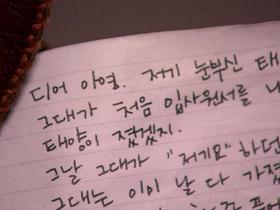 디어 아영. 저기 눈부신 태
그대가 처음 입사원서를 나
태양이 졌겠지.
그날 그대가 "저기요" 하던
그대는 이미 날 다 가졌